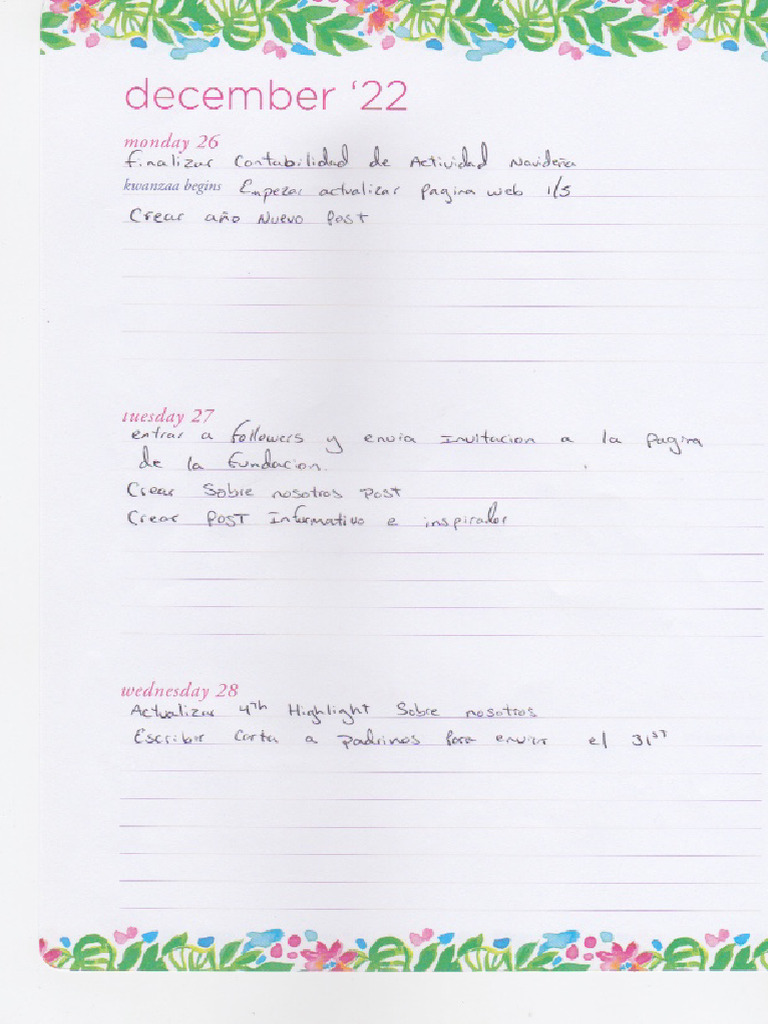 december '22
monday 26
Finalizar Contabilidad de Actividad Navideña
kwanzaa begins Empezar actualizar Pagina web 1/5
Crear año Nuevo Post
tuesday 27
entrar a followers y envia Invitacion a la pagina
de la Fundacion.
Crear Sobre nosotros Post
Crear Post Informativo e inspirador
wednesday 28
Actualizar 4th Highlight Sobre nosotros
Escribir Carta a padrinos para enviar el 31st